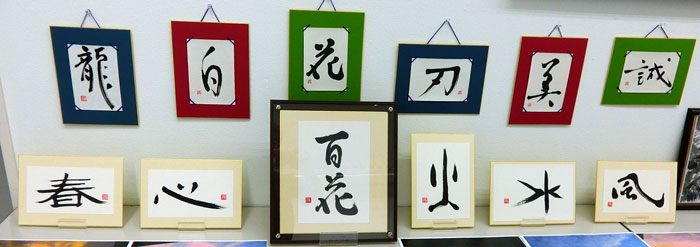 龍
白
花
刃
美
誠
春
心
百花
火
水
風